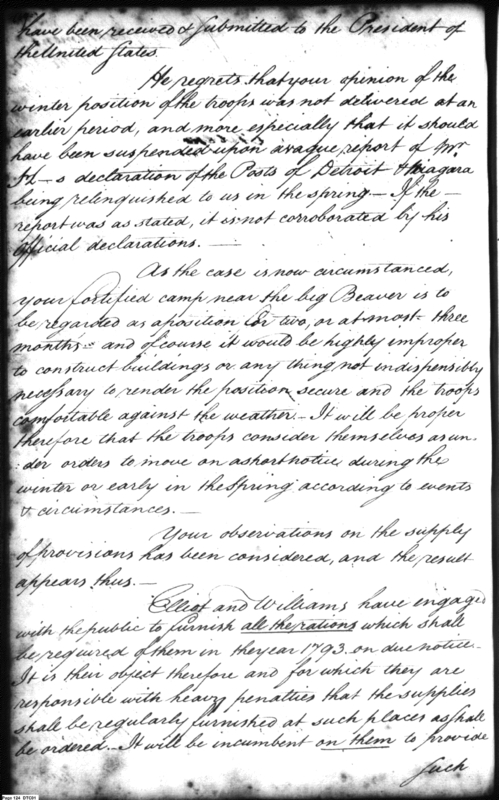 have been received & submitted to the President of
the United States.
He regrets that your opinion of the
winter position of the troops was not delivered at an
earlier period, and more especially that it should
have been suspended upon a vague report of Mr.
H—s declaration of the Posts of Detroit & Niagara
being relinquished to us in the spring — If the —
report was as stated, it is not corroborated by his
official declarations. —
As the case is now circumstanced,
your fortified camp near the big Beaver is to
be regarded as a position for two, or at most three
months — and of course it would be highly improper
to construct buildings or any thing not indispensibly
necessary to render the position secure and the troops
comfortable against the weather. — It will be proper
therefore that the troops consider themselves as un-
der orders to move on a short notice during the
winter or early in the Spring according to events
& circumstances. —
Your observations on the supply
of provisions has been considered, and the result
appears thus. —
Elliot and Williams have engaged
with the public to furnish all the rations which shall
be required of them in the year 1793. on due notice.
It is their object therefore and for which they are
responsible with heavy penalties that the supplies
shall be regularly furnished at such places as shall
be ordered. — It will be incumbent on them to provide
such
Page 134 DTC01